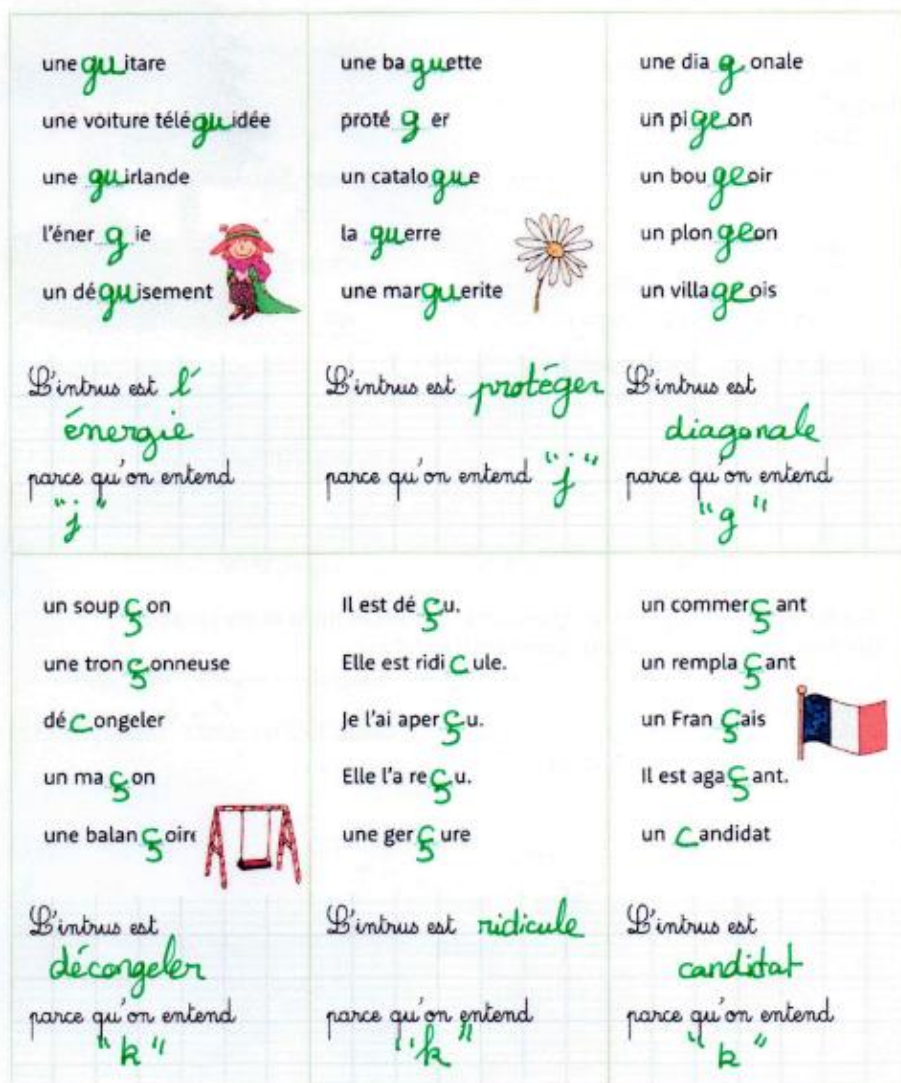 une guitare
une voiture téléguidée
une guirlande
l'énergie
un déguisement
L'intrus est l'
énergie
parce qu'on entend
"j"
une baguette
protéger
un catalogue
la guerre
une marguerite
L'intrus est protéger
parce qu'on entend "j"
une diagonale
un pigeon
un bougeoir
un plongeon
un villageois
L'intrus est
diagonale
parce qu'on entend
"g"
un soupçon
une tronçonneuse
décongeler
un maçon
une balançoire
L'intrus est
décongeler
parce qu'on entend
"k"
Il est déçu.
Elle est ridicule.
Je l'ai aperçu.
Elle l'a reçu.
une gerçure
L'intrus est ridicule
parce qu'on entend
"k"
un commerçant
un remplaçant
un Français
Il est agaçant.
un candidat
L'intrus est
candidat
parce qu'on entend
"k"